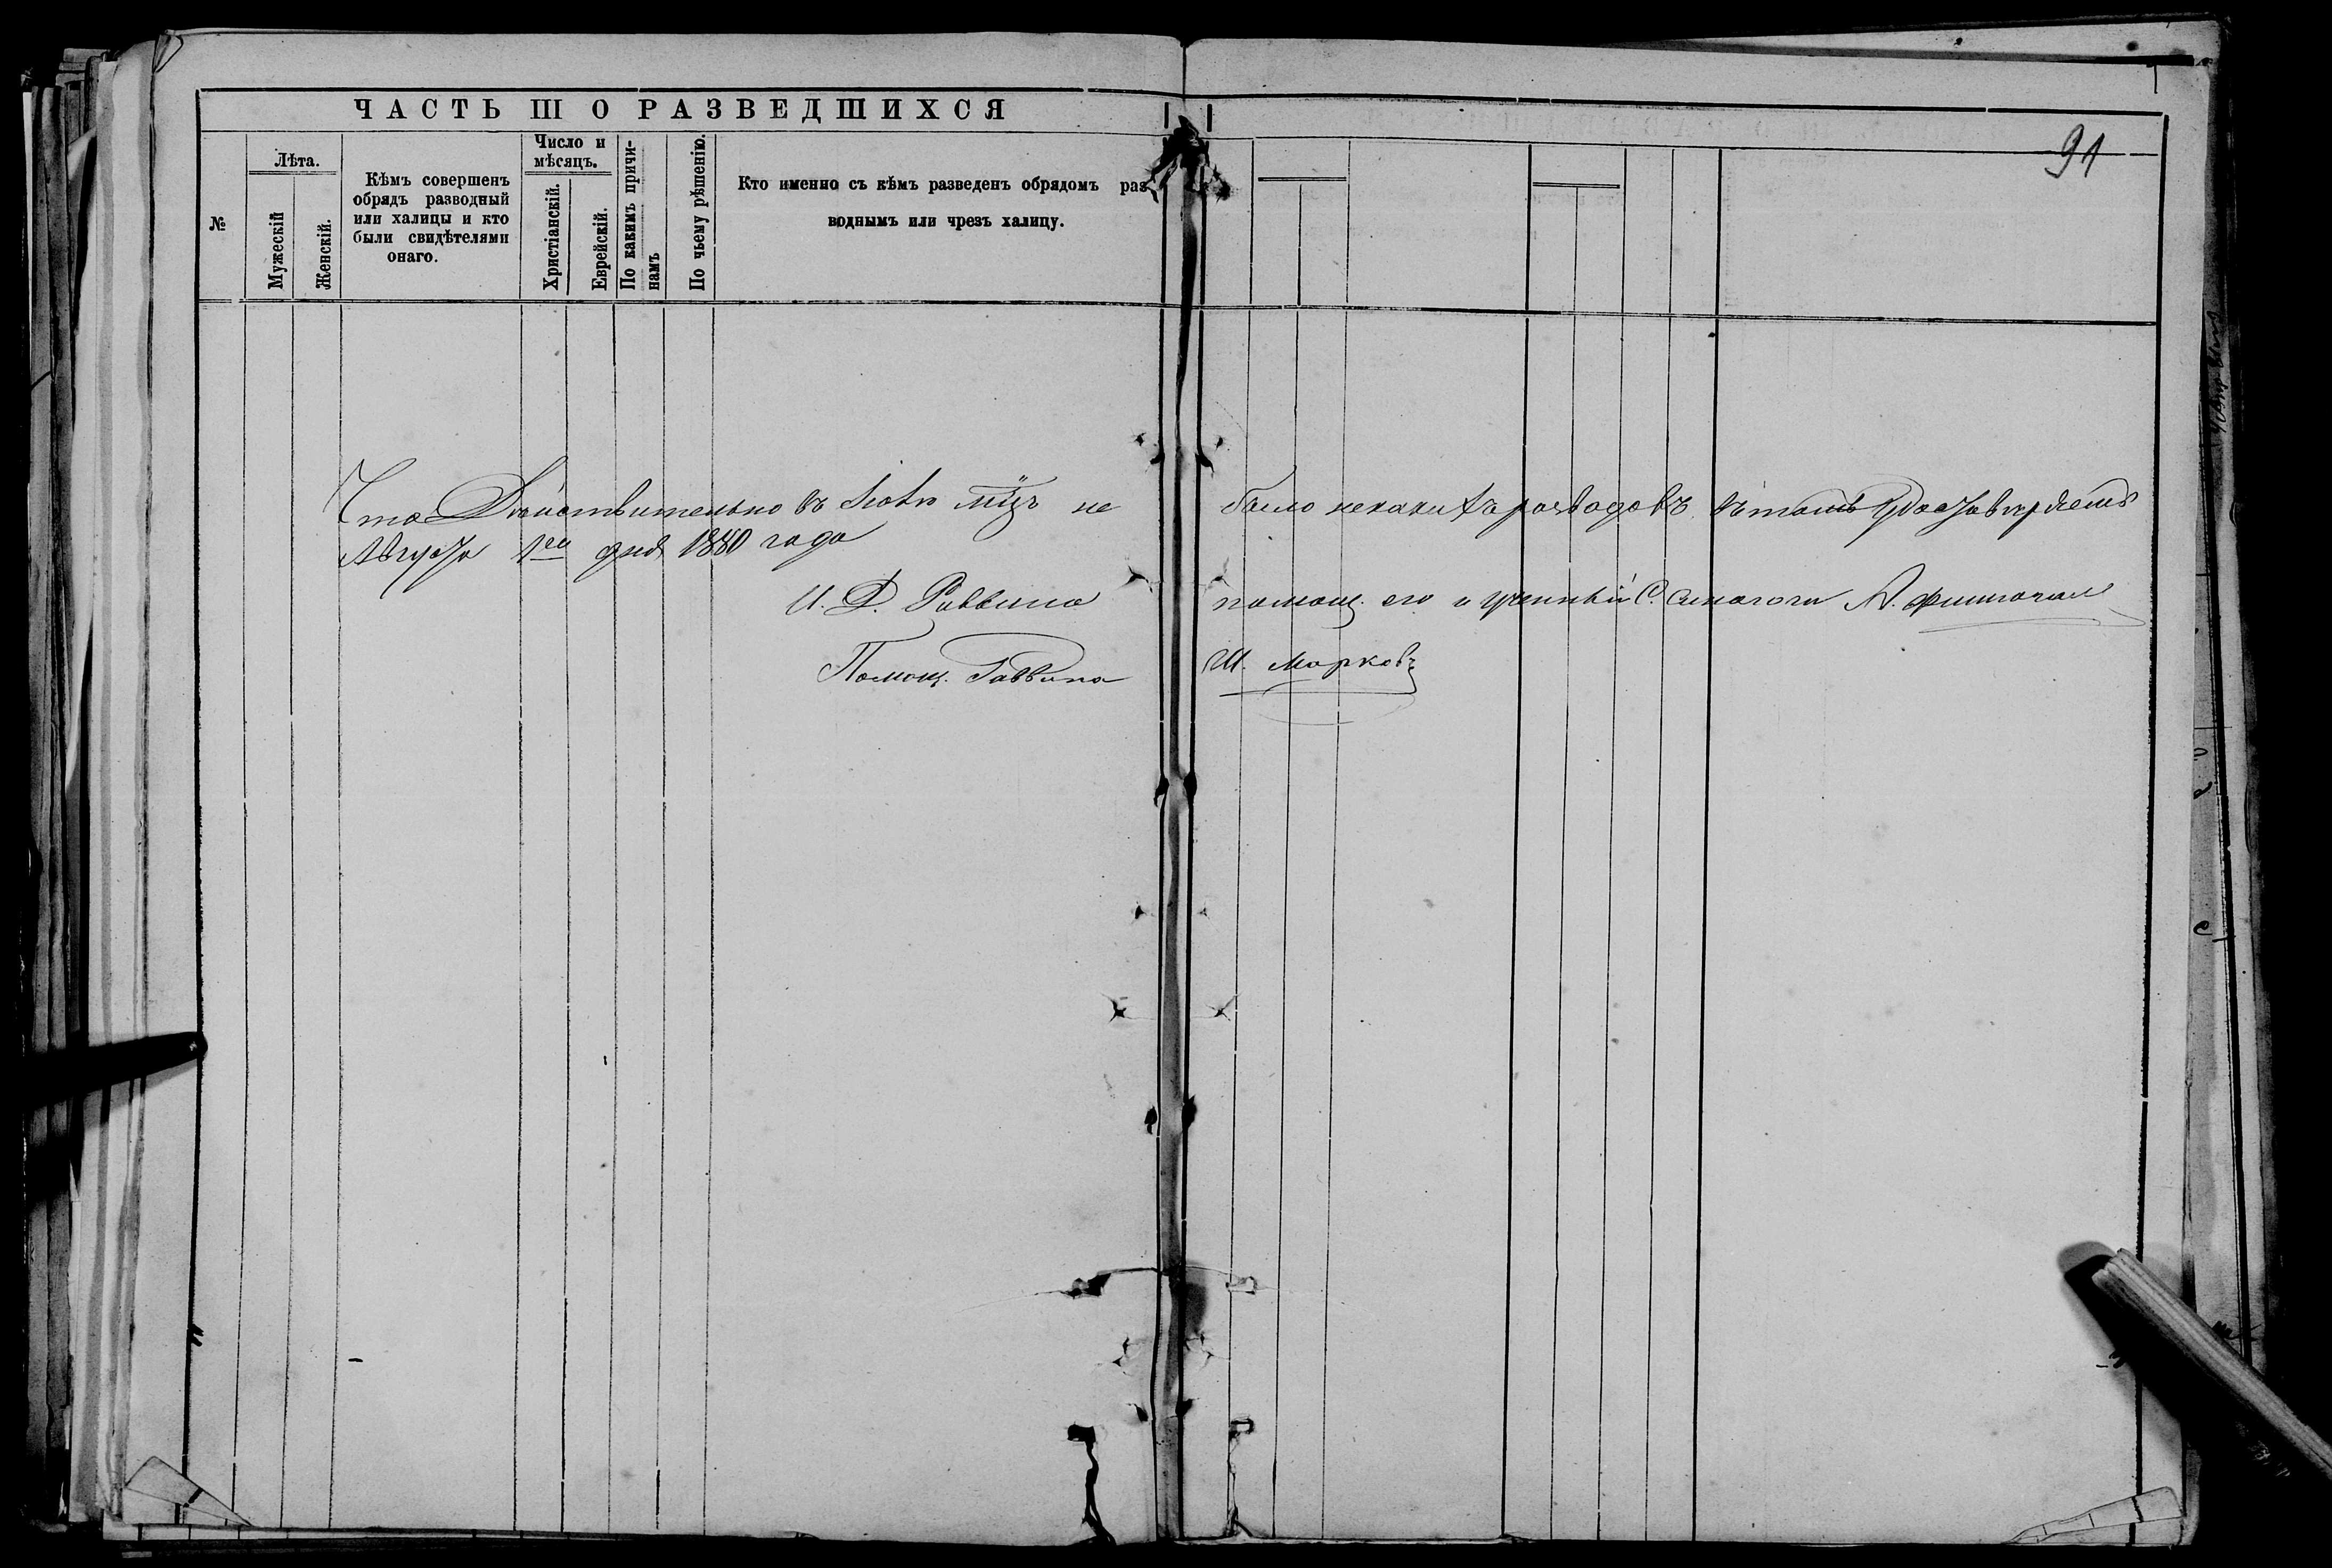 ЧАСТЬ III О РАЗВЕДШИХСЯ
91
№
Лѣта.
Мужескій
Женскій.
Кѣмъ совершенъ
обрядъ разводный
или халицы и кто
были свидѣтелями
онаго.
Число и
мѣсяцъ.
Христіанскій.
Еврейскій.
По какимъ причи-
намъ
По чьему рѣшенію.
Кто именно съ кѣмъ разведенъ обрядомъ раз
воднымъ или чрезъ халицу.
Что Дѣйствительно въ Іюлѣ мцѣ не было некакихъ розводовъ въ томъ удостовѣряемъ
Августа 1го дня 1880 года
И. Д. Раввина помощ. его и ученный С. Синагоги
Помощ. Раввина Ш. Марковъ